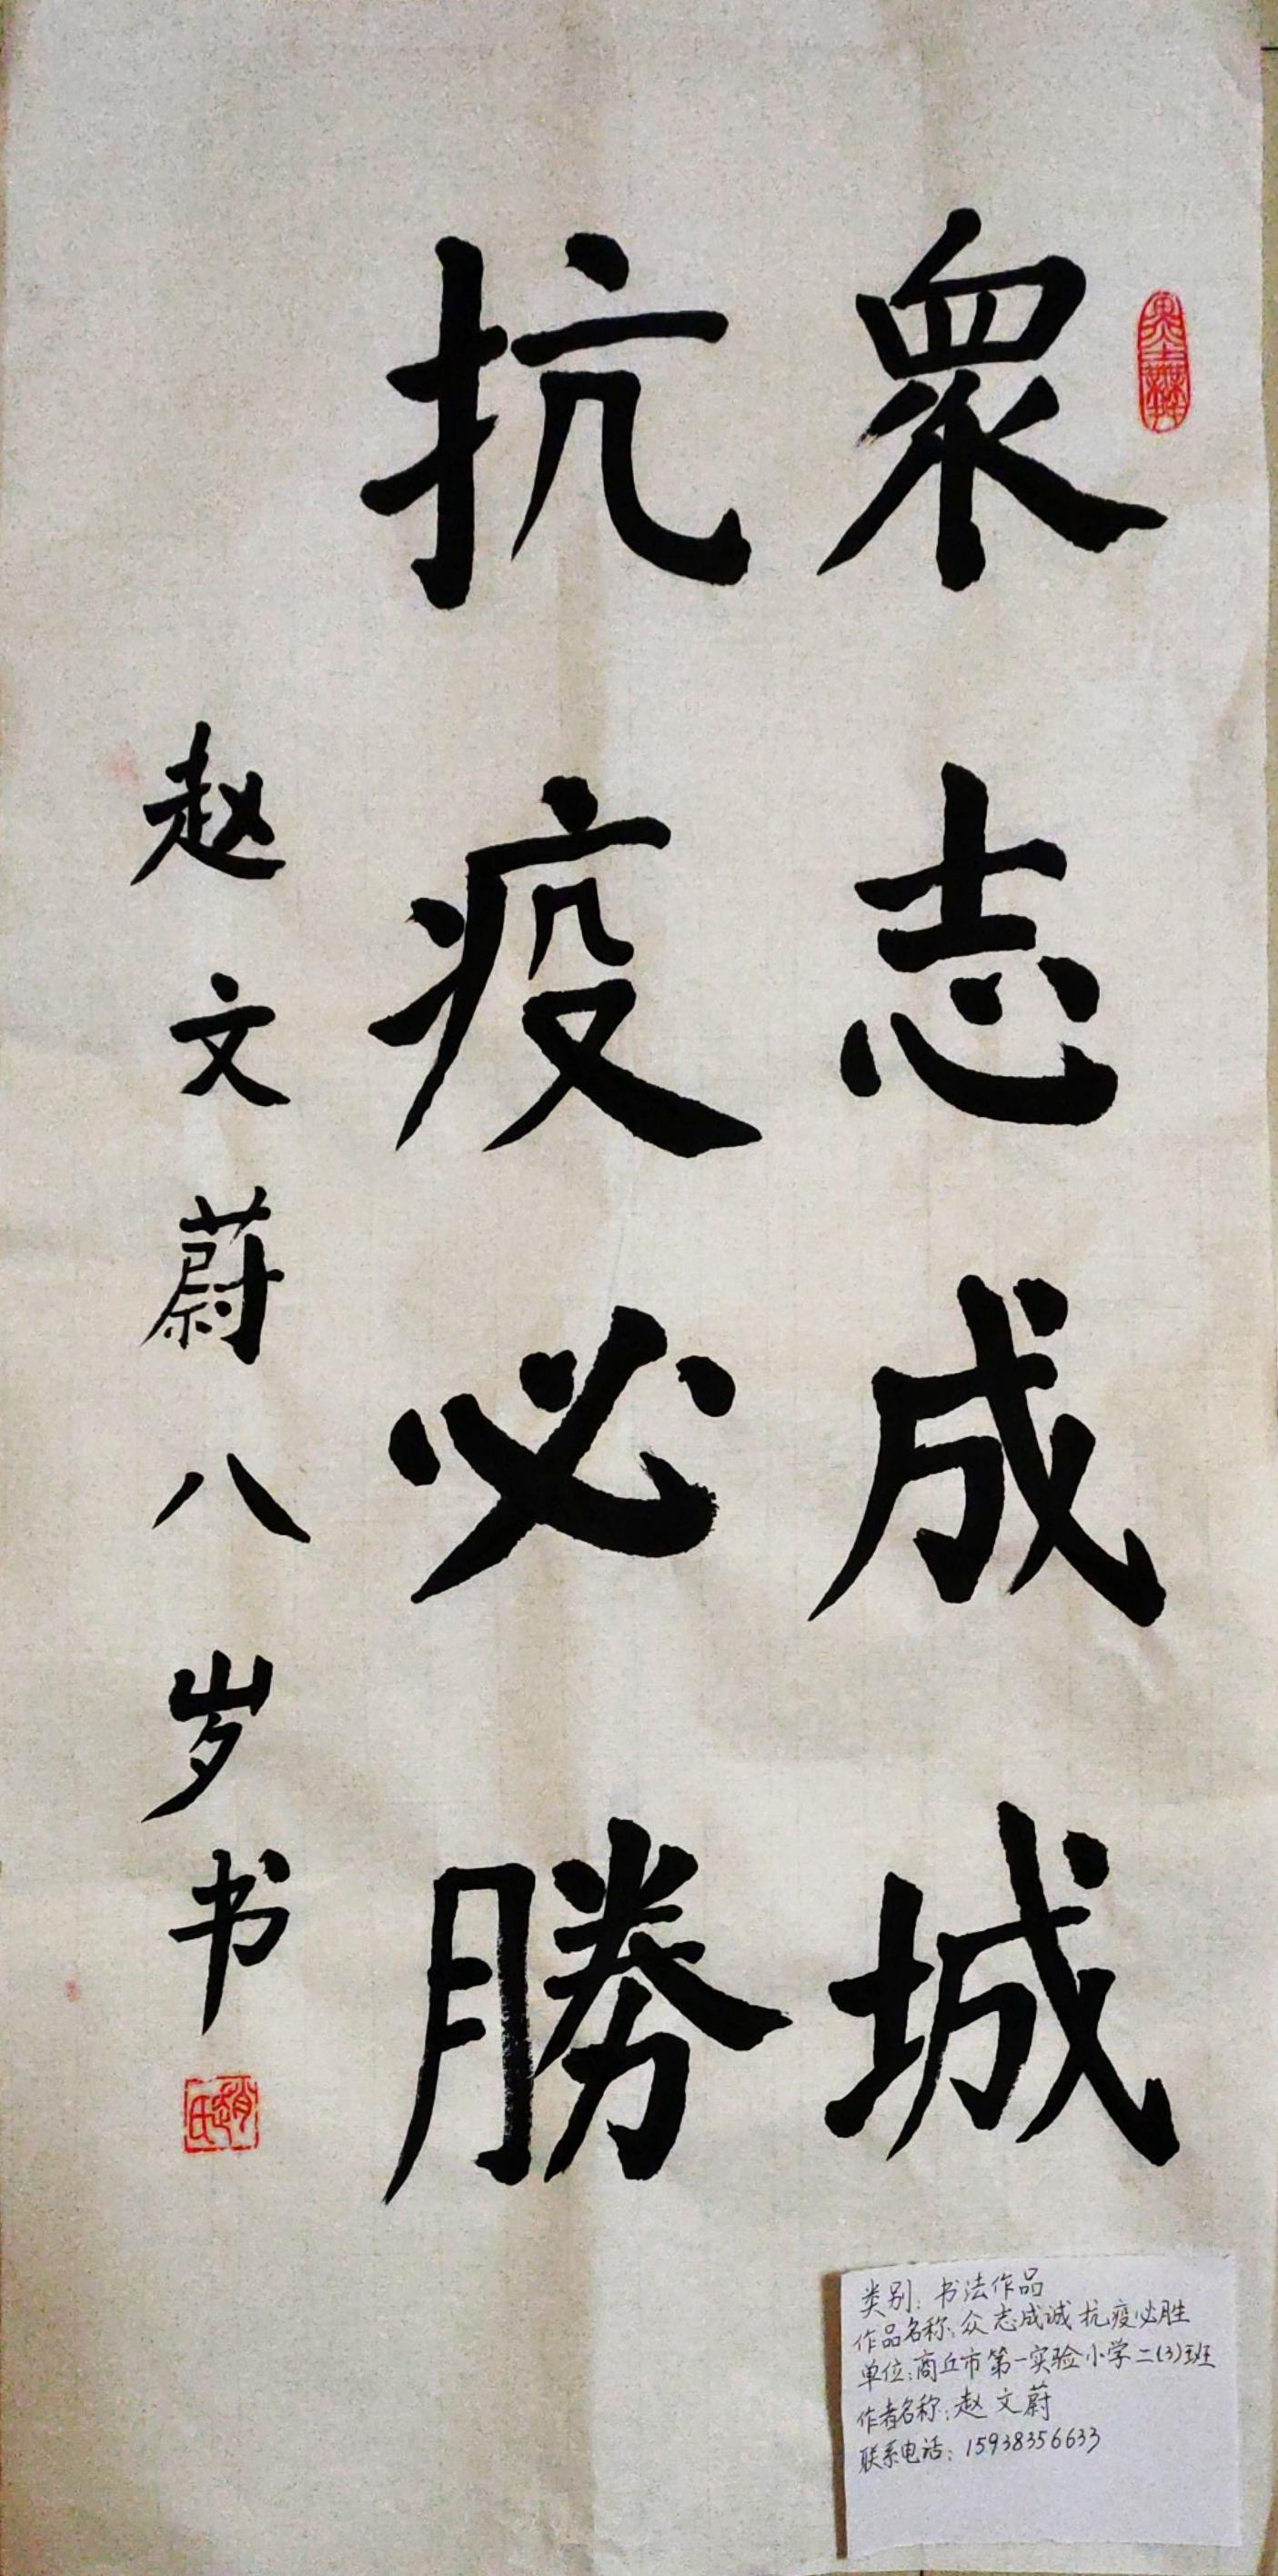 眾志成城
抗疫必勝
赵文蔚八岁书
趙氏
类别：书法作品
作品名称：众志成诚 抗疫必胜
单位：商丘市第一实验小学二(3)班
作者名称：赵文蔚
联系电话：15938356633